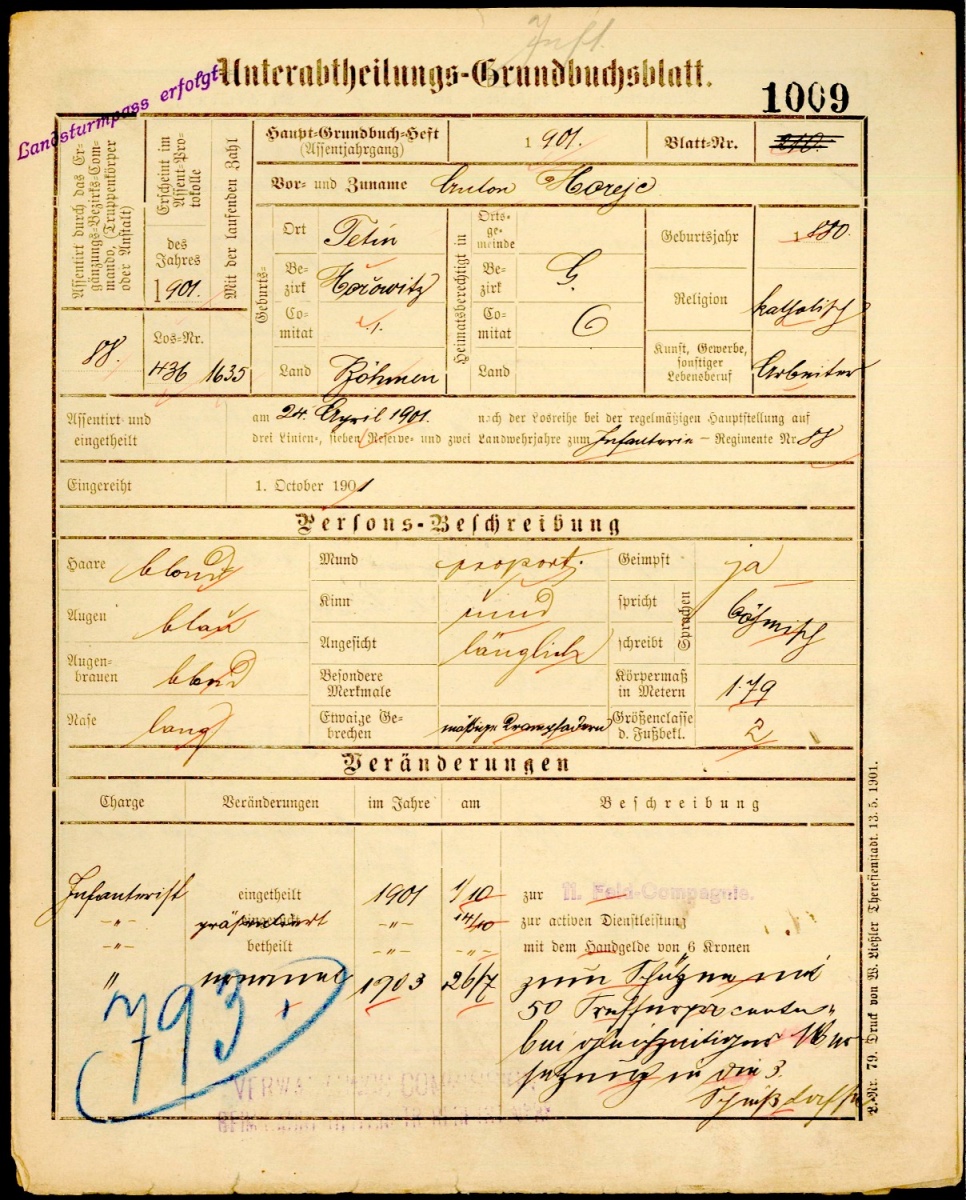 Infl.
Unterabtheilungs-Grundbuchsblatt.
Landsturmpass erfolgt
1009
Assentirt durch das Ergänzungs-Bezirks-Commando, (Truppenkörper oder Anstalt)
88.
Erscheint im Assent-Protokolle
des Jahres
1901.
Mit der laufenden Zahl
Los-Nr.
436 1635
Haupt-Grundbuch-Heft
(Assentjahrgang)
1901.
Blatt-Nr. 210.
Vor- und Zuname Anton Horejc
Geburts-
Ort Tetin
Bezirk Hořowitz
Comitat
Land Böhmen
Heimatsberechtigt in
Ortsgemeinde
Bezirk
Comitat
Land
Geburtsjahr 1880.
Religion katholisch
Kunst, Gewerbe, sonstiger Lebensberuf Arbeiter
Assentirt und eingetheilt
am 24. April 1901. nach der Losreihe bei der regelmäßigen Hauptstellung auf
drei Linien-, sieben Reserve- und zwei Landwehrjahre zum Infanterie - Regimente Nr. 88
Eingereiht 1. October 1901
Persons-Beschreibung
Haare blond
Augen blau
Augenbrauen blond
Nase lang
Mund proport.
Kinn rund
Angesicht länglich
Besondere Merkmale
Etwaige Gebrechen mäßige Krampfadern
Geimpft ja
spricht
schreibt
Sprachen
böhmisch
Körpermaß in Metern 1.79
Größenclasse d. Fußbekl. 2
Veränderungen
Charge Veränderungen im Jahre am Beschreibung
Infanterist eingetheilt 1901 1/10 zur 11. Feld-Compagnie.
-"- präsentiert 14/10 -"- zur activen Dienstleistung
-"- betheilt -"- -"- mit dem Handgelde von 6 Kronen
" 1903 26/7 zum Schützen mit
50
bei gleichzeitiger Ver
setzung in die 3.
793.
L.-Nr. 79. Druck von W. Ließler Theresienstadt. 13. 5. 1901.